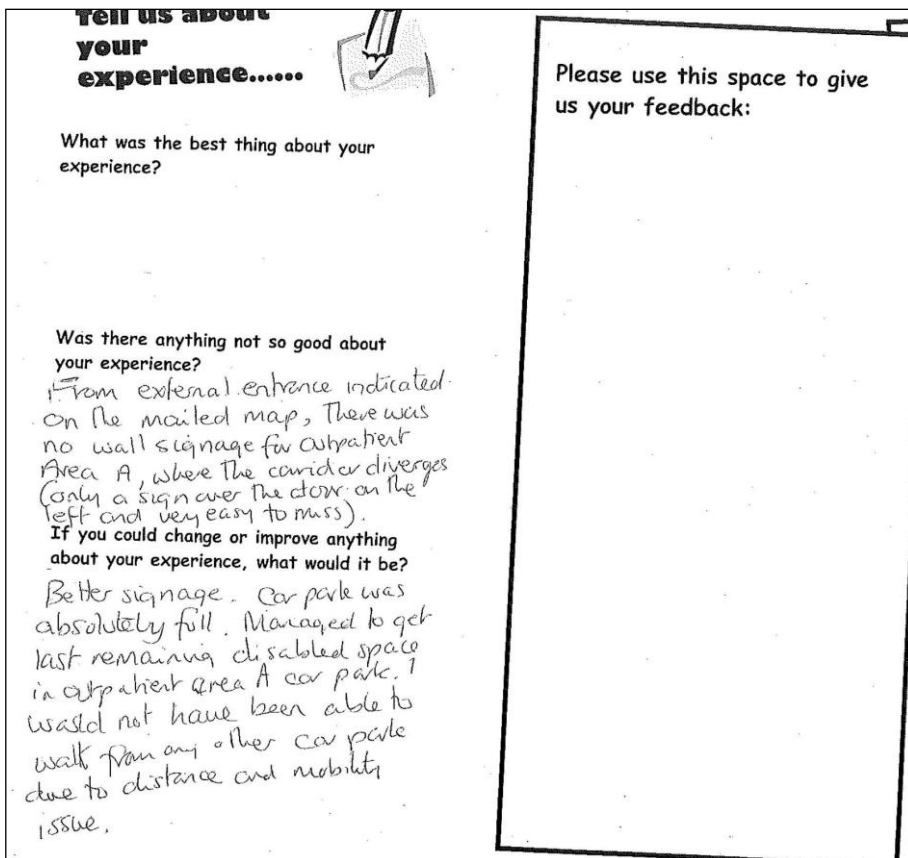 Tell us about
your
experience......
What was the best thing about your
experience?
Was there anything not so good about
your experience?
From external entrance indicated
on the mailed map, There was
no wall signage for outpatient
Area A, where the corridor diverges
(only a sign over the door on the
left and very easy to miss).
If you could change or improve anything
about your experience, what would it be?
Better signage. Car park was
absolutely full. Managed to get
last remaining disabled space
in outpatient area A car park. I
would not have been able to
walk from any other car park
due to distance and mobility
issue.
Please use this space to give
us your feedback: